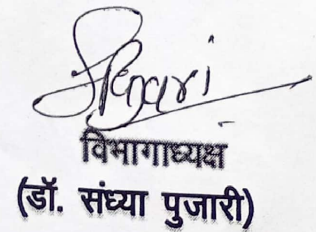 विभागाध्यक्ष
(डॉ. संध्या पुजारी)